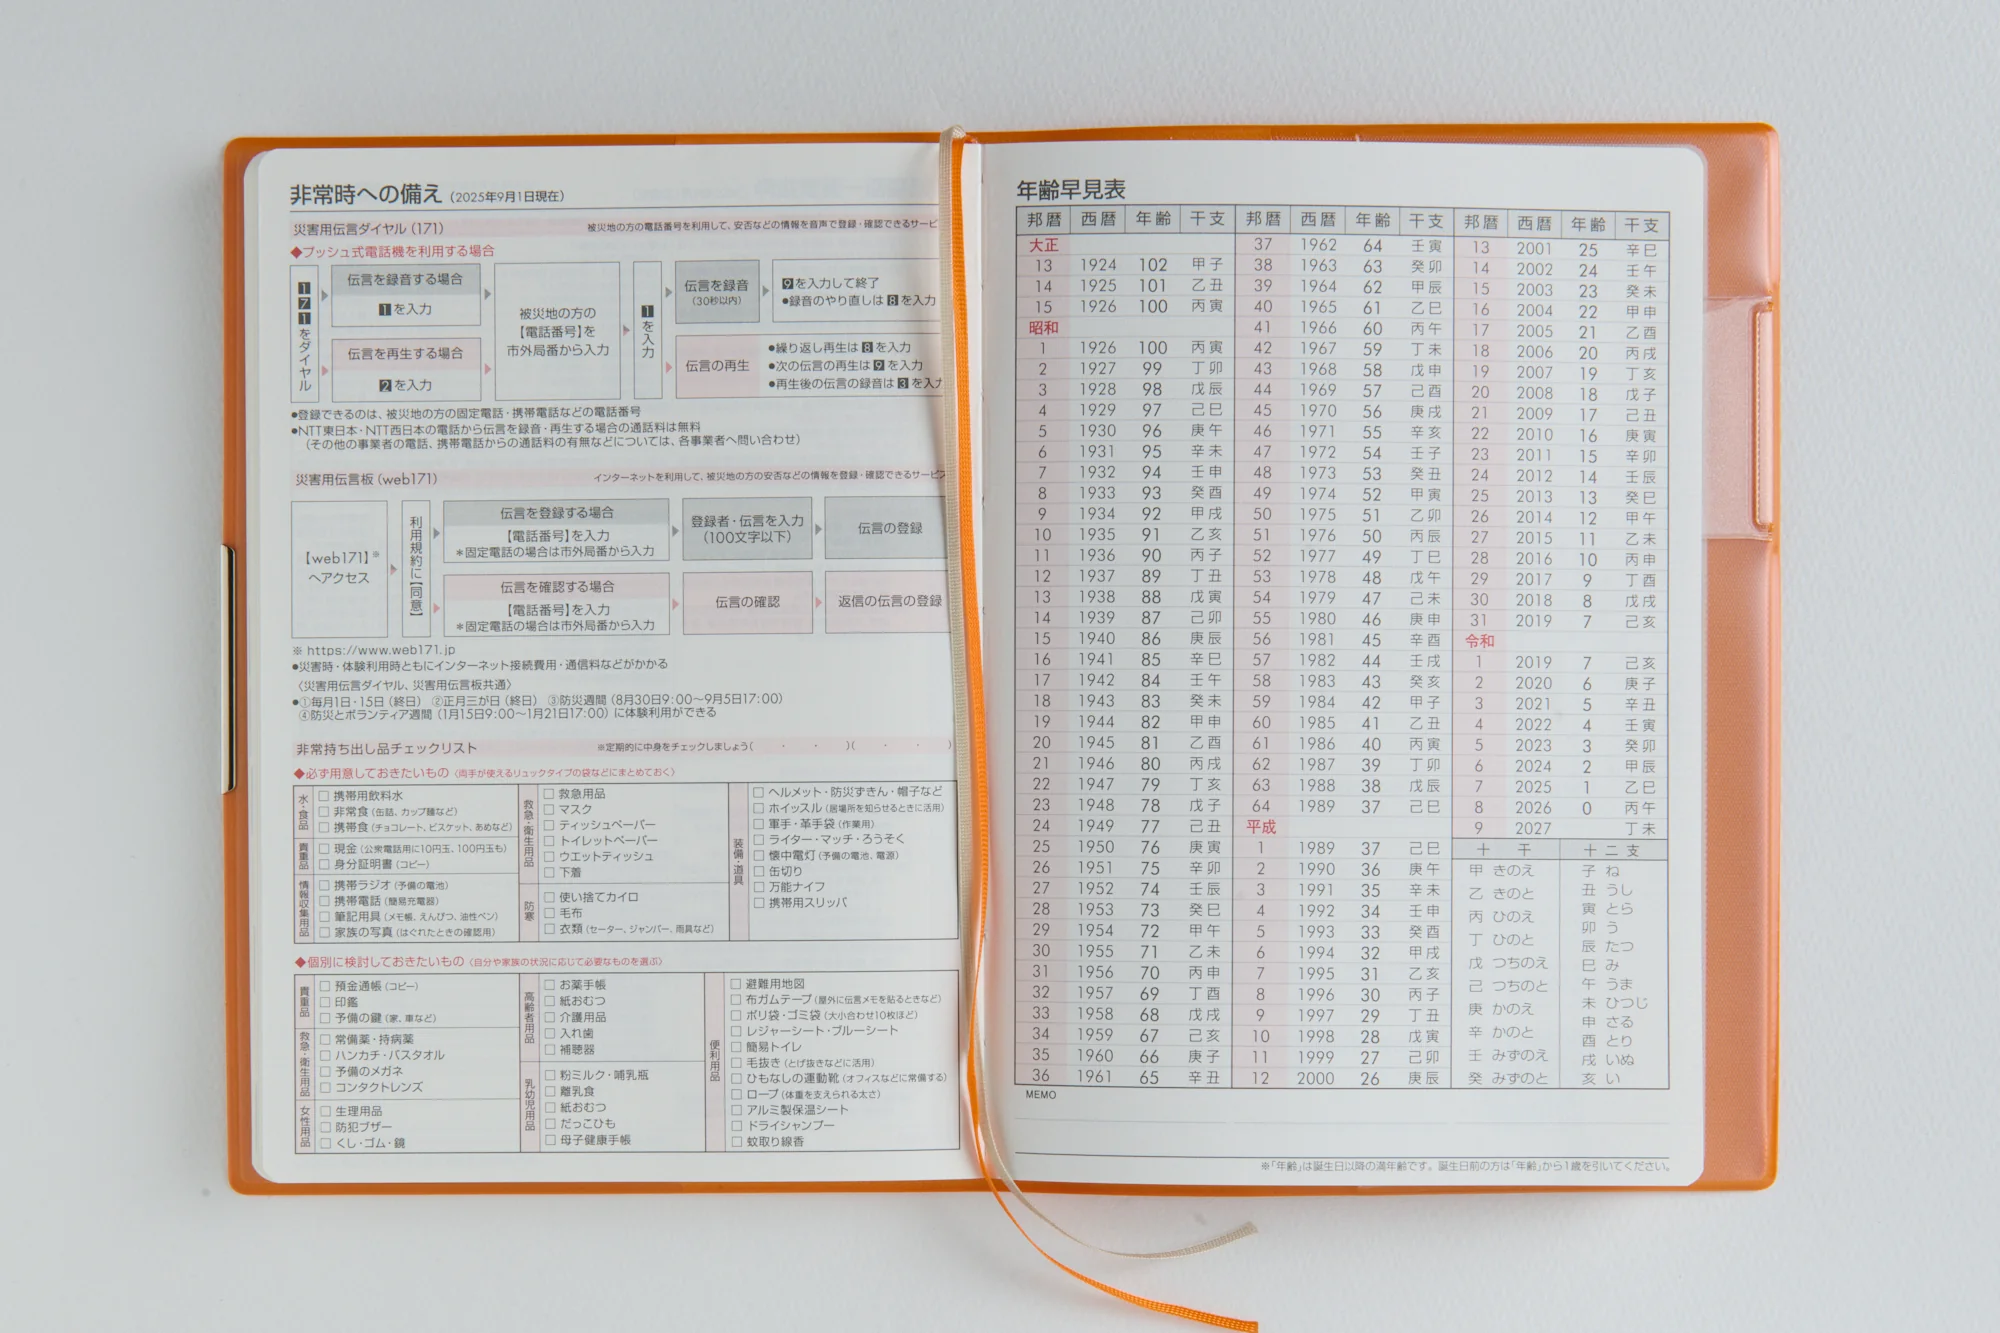 非常時への備え（2025年9月1日現在）
災害用伝言ダイヤル（171）　被災地の方の電話番号を利用して、安否などの情報を音声で登録・確認できるサービ
◆プッシュ式電話機を利用する場合
171をダイヤル
伝言を録音する場合
1を入力
伝言を再生する場合
2を入力
被災地の方の
【電話番号】を
市外局番から入力
1を入力
伝言を録音
（30秒以内）
9を入力して終了
●録音のやり直しは8を入力
伝言の再生
●繰り返し再生は8を入力
●次の伝言の再生は9を入力
●再生後の伝言の録音は3を入力
●登録できるのは、被災地の方の固定電話・携帯電話などの電話番号
●NTT東日本・NTT西日本の電話から伝言を録音・再生する場合の通話料は無料
（その他の事業者の電話、携帯電話からの通話料の有無などについては、各事業者へ問い合わせ）
災害用伝言板（web171）　インターネットを利用して、被災地の方の安否などの情報を登録・確認できるサービス
【web171】※
へアクセス
利用規約に【同意】
伝言を登録する場合
【電話番号】を入力
＊固定電話の場合は市外局番から入力
登録者・伝言を入力
（100文字以下）
伝言の登録
伝言を確認する場合
【電話番号】を入力
＊固定電話の場合は市外局番から入力
伝言の確認
返信の伝言の登録
※ https://www.web171.jp
●災害時・体験利用時ともにインターネット接続費用・通信料などがかかる
〈災害用伝言ダイヤル、災害用伝言板共通〉
●①毎月1日・15日（終日）　②正月三が日（終日）　③防災週間（8月30日9：00～9月5日17：00）
④防災とボランティア週間（1月15日9：00～1月21日17：00）に体験利用ができる
非常持ち出し品チェックリスト　※定期的に中身をチェックしましょう（　・　・　）（　・　・　）
◆必ず用意しておきたいもの〈両手が使えるリュックタイプの袋などにまとめておく〉
水・食品
□ 携帯用飲料水
□ 非常食（缶詰、カップ麺など）
□ 携帯食（チョコレート、ビスケット、あめなど）
貴重品
□ 現金（公衆電話用に10円玉、100円玉も）
□ 身分証明書（コピー）
情報収集用品
□ 携帯ラジオ（予備の電池）
□ 携帯電話（簡易充電器）
□ 筆記用具（メモ帳、えんぴつ、油性ペン）
□ 家族の写真（はぐれたときの確認用）
救急・衛生用品
□ 救急用品
□ マスク
□ ティッシュペーパー
□ トイレットペーパー
□ ウエットティッシュ
□ 下着
防寒
□ 使い捨てカイロ
□ 毛布
□ 衣類（セーター、ジャンパー、雨具など）
装備・道具
□ ヘルメット・防災ずきん・帽子など
□ ホイッスル（居場所を知らせるときに活用）
□ 軍手・革手袋（作業用）
□ ライター・マッチ・ろうそく
□ 懐中電灯（予備の電池、電源）
□ 缶切り
□ 万能ナイフ
□ 携帯用スリッパ
◆個別に検討しておきたいもの〈自分や家族の状況に応じて必要なものを選ぶ〉
貴重品
□ 預金通帳（コピー）
□ 印鑑
□ 予備の鍵（家、車など）
救急・衛生用品
□ 常備薬・持病薬
□ ハンカチ・バスタオル
□ 予備のメガネ
□ コンタクトレンズ
女性用品
□ 生理用品
□ 防犯ブザー
□ くし・ゴム・鏡
高齢者用品
□ お薬手帳
□ 紙おむつ
□ 介護用品
□ 入れ歯
□ 補聴器
乳幼児用品
□ 粉ミルク・哺乳瓶
□ 離乳食
□ 紙おむつ
□ だっこひも
□ 母子健康手帳
便利用品
□ 避難用地図
□ 布ガムテープ（屋外に伝言メモを貼るときなど）
□ ポリ袋・ゴミ袋（大小合わせ10枚ほど）
□ レジャーシート・ブルーシート
□ 簡易トイレ
□ 毛抜き（とげ抜きなどに活用）
□ ひもなしの運動靴（オフィスなどに常備する）
□ ロープ（体重を支えられる太さ）
□ アルミ製保温シート
□ ドライシャンプー
□ 蚊取り線香
年齢早見表
邦暦 西暦 年齢 干支
大正
13 1924 102 甲子
14 1925 101 乙丑
15 1926 100 丙寅
昭和
1 1926 100 丙寅
2 1927 99 丁卯
3 1928 98 戊辰
4 1929 97 己巳
5 1930 96 庚午
6 1931 95 辛未
7 1932 94 壬申
8 1933 93 癸酉
9 1934 92 甲戌
10 1935 91 乙亥
11 1936 90 丙子
12 1937 89 丁丑
13 1938 88 戊寅
14 1939 87 己卯
15 1940 86 庚辰
16 1941 85 辛巳
17 1942 84 壬午
18 1943 83 癸未
19 1944 82 甲申
20 1945 81 乙酉
21 1946 80 丙戌
22 1947 79 丁亥
23 1948 78 戊子
24 1949 77 己丑
25 1950 76 庚寅
26 1951 75 辛卯
27 1952 74 壬辰
28 1953 73 癸巳
29 1954 72 甲午
30 1955 71 乙未
31 1956 70 丙申
32 1957 69 丁酉
33 1958 68 戊戌
34 1959 67 己亥
35 1960 66 庚子
36 1961 65 辛丑
邦暦 西暦 年齢 干支
37 1962 64 壬寅
38 1963 63 癸卯
39 1964 62 甲辰
40 1965 61 乙巳
41 1966 60 丙午
42 1967 59 丁未
43 1968 58 戊申
44 1969 57 己酉
45 1970 56 庚戌
46 1971 55 辛亥
47 1972 54 壬子
48 1973 53 癸丑
49 1974 52 甲寅
50 1975 51 乙卯
51 1976 50 丙辰
52 1977 49 丁巳
53 1978 48 戊午
54 1979 47 己未
55 1980 46 庚申
56 1981 45 辛酉
57 1982 44 壬戌
58 1983 43 癸亥
59 1984 42 甲子
60 1985 41 乙丑
61 1986 40 丙寅
62 1987 39 丁卯
63 1988 38 戊辰
64 1989 37 己巳
平成
1 1989 37 己巳
2 1990 36 庚午
3 1991 35 辛未
4 1992 34 壬申
5 1993 33 癸酉
6 1994 32 甲戌
7 1995 31 乙亥
8 1996 30 丙子
9 1997 29 丁丑
10 1998 28 戊寅
11 1999 27 己卯
12 2000 26 庚辰
邦暦 西暦 年齢 干支
13 2001 25 辛巳
14 2002 24 壬午
15 2003 23 癸未
16 2004 22 甲申
17 2005 21 乙酉
18 2006 20 丙戌
19 2007 19 丁亥
20 2008 18 戊子
21 2009 17 己丑
22 2010 16 庚寅
23 2011 15 辛卯
24 2012 14 壬辰
25 2013 13 癸巳
26 2014 12 甲午
27 2015 11 乙未
28 2016 10 丙申
29 2017 9 丁酉
30 2018 8 戊戌
31 2019 7 己亥
令和
1 2019 7 己亥
2 2020 6 庚子
3 2021 5 辛丑
4 2022 4 壬寅
5 2023 3 癸卯
6 2024 2 甲辰
7 2025 1 乙巳
8 2026 0 丙午
9 2027 丁未
十干
甲 きのえ
乙 きのと
丙 ひのえ
丁 ひのと
戊 つちのえ
己 つちのと
庚 かのえ
辛 かのと
壬 みずのえ
癸 みずのと
十二支
子 ね
丑 うし
寅 とら
卯 う
辰 たつ
巳 み
午 うま
未 ひつじ
申 さる
酉 とり
戌 いぬ
亥 い
MEMO
※「年齢」は誕生日以降の満年齢です。誕生日前の方は「年齢」から1歳を引いてください。